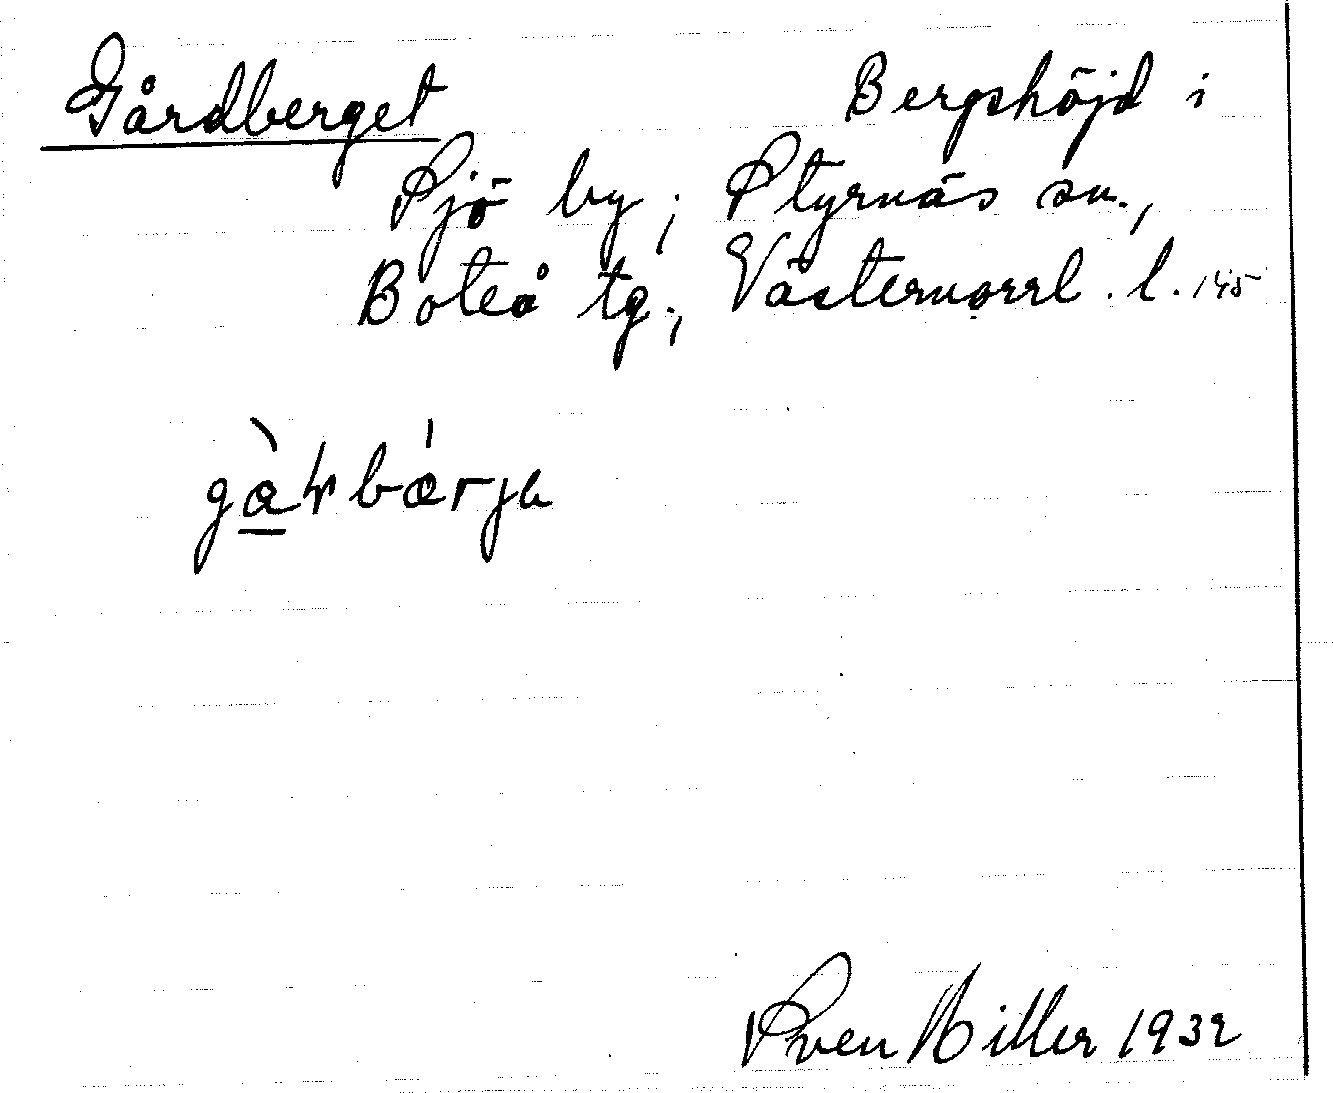 Gårdberget Bergshöjd i
Sjö by; Styrnäs sn.,
Boteå tg., Västernorrl. l. 145
Sven Hiller 1932